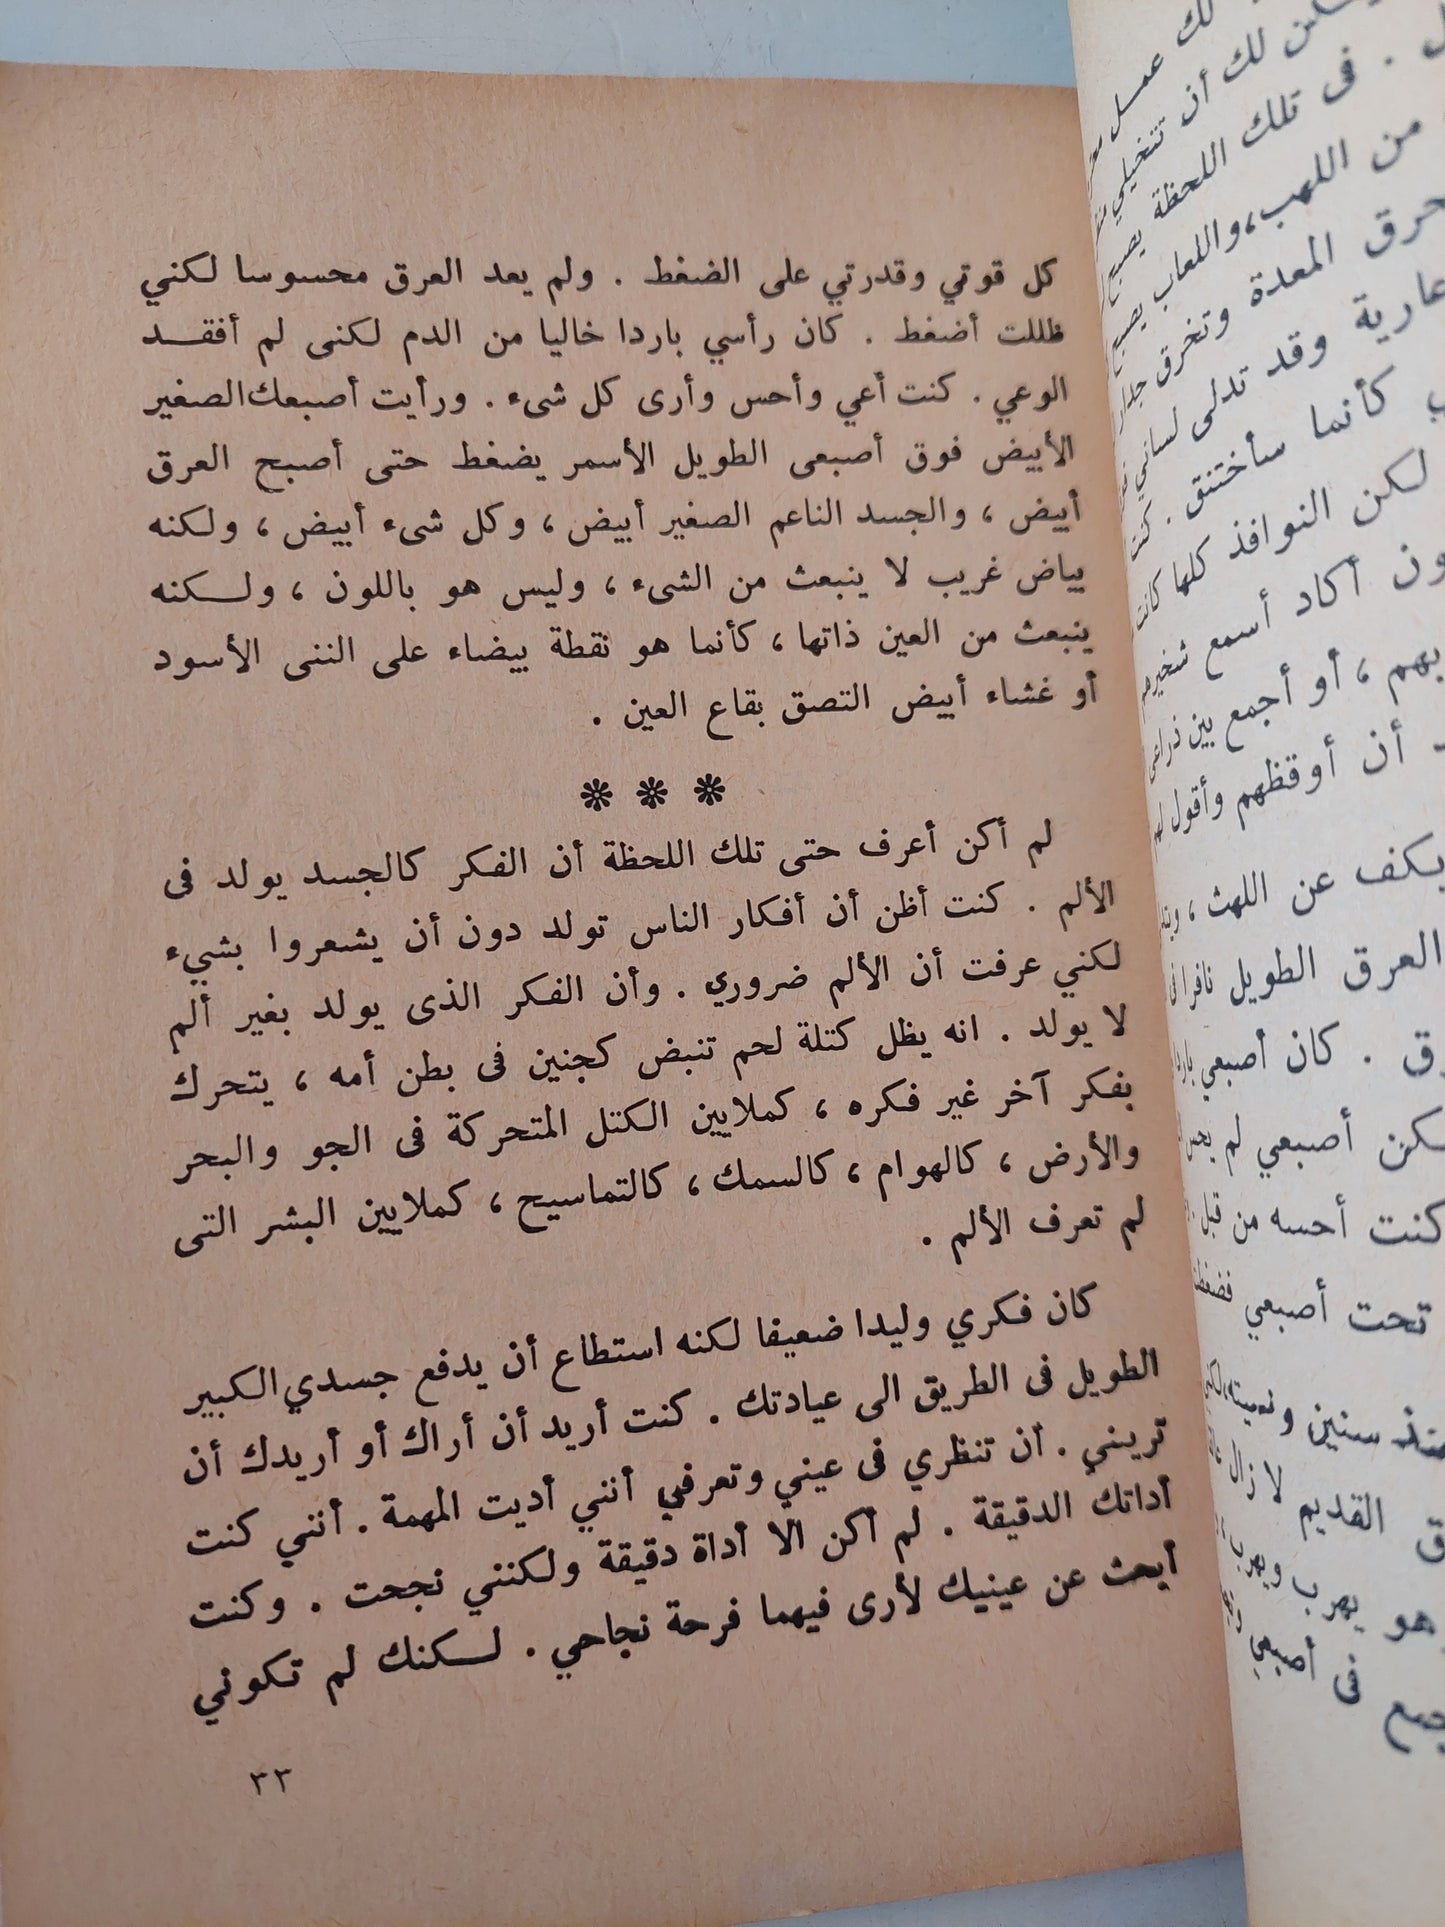 كل قوتي وقدرتي على الضغط . ولم يعد العرق محسوسا لكني
ظللت أضغط . كان رأسي باردا خاليا من الدم لكنى لم أفقد
الوعي . كنت أعي وأحس وأرى كل شىء . ورأيت أصبعك الصغير
الأبيض فوق أصبعى الطويل الأسمر يضغط حتى أصبح العرق
أبيض ، والجسد الناعم الصغير أبيض ، وكل شىء أبيض ، ولكنه
بياض غريب لا ينبعث من الشىء ، وليس هو باللون ، ولكنه
ينبعث من العين ذاتها ، كأنما هو نقطة بيضاء على الننى الأسود
أو غشاء أبيض التصق بقاع العين .
❊ ❊ ❊
لم أكن أعرف حتى تلك اللحظة أن الفكر كالجسد يولد فى
الألم . كنت أظن أن أفكار الناس تولد دون أن يشعروا بشيء
لكني عرفت أن الألم ضروري . وأن الفكر الذى يولد بغير ألم
لا يولد . انه يظل كتلة لحم تنبض كجنين فى بطن أمه ، يتحرك
بفكر آخر غير فكره ، كملايين الكتل المتحركة فى الجو والبحر
والأرض ، كالهوام ، كالسمك ، كالتماسيح ، كملايين البشر التى
لم تعرف الألم .
كان فكري وليدا ضعيفا لكنه استطاع أن يدفع جسدي الكبير
الطويل فى الطريق الى عيادتك . كنت أريد أن أراك أو أريدك أن
ترينني . أن تنظري فى عيني وتعرفي أنني أديت المهمة . أنني كنت
أداتك الدقيقة . لم أكن الا أداة دقيقة ولكنني نجحت . وكنت
أبحث عن عينيك لأرى فيهما فرحة نجاحي . لكنك لم تكوني
٣٣
لك عمل
لك أن تتخيلي
. فى تلك اللحظة يصبح
من اللهب ، واللعاب يصبح
المعدة وتخرق جدار
عارية وقد تدلى لساني
كأنما سأختنق . كنت
لكن النوافذ كلها كانت
أكاد أسمع
بهم ، أو أجمع بين ذراعى
أن أوقظهم وأقول
يكف عن اللهث ،
العرق الطويل نافرا
. كان أصبعي
أصبعي لم
كنت أحسه من قبل
تحت أصبعي
سنين
القديم لا زال
وهو يهرب ويهرب
فى أصبعي